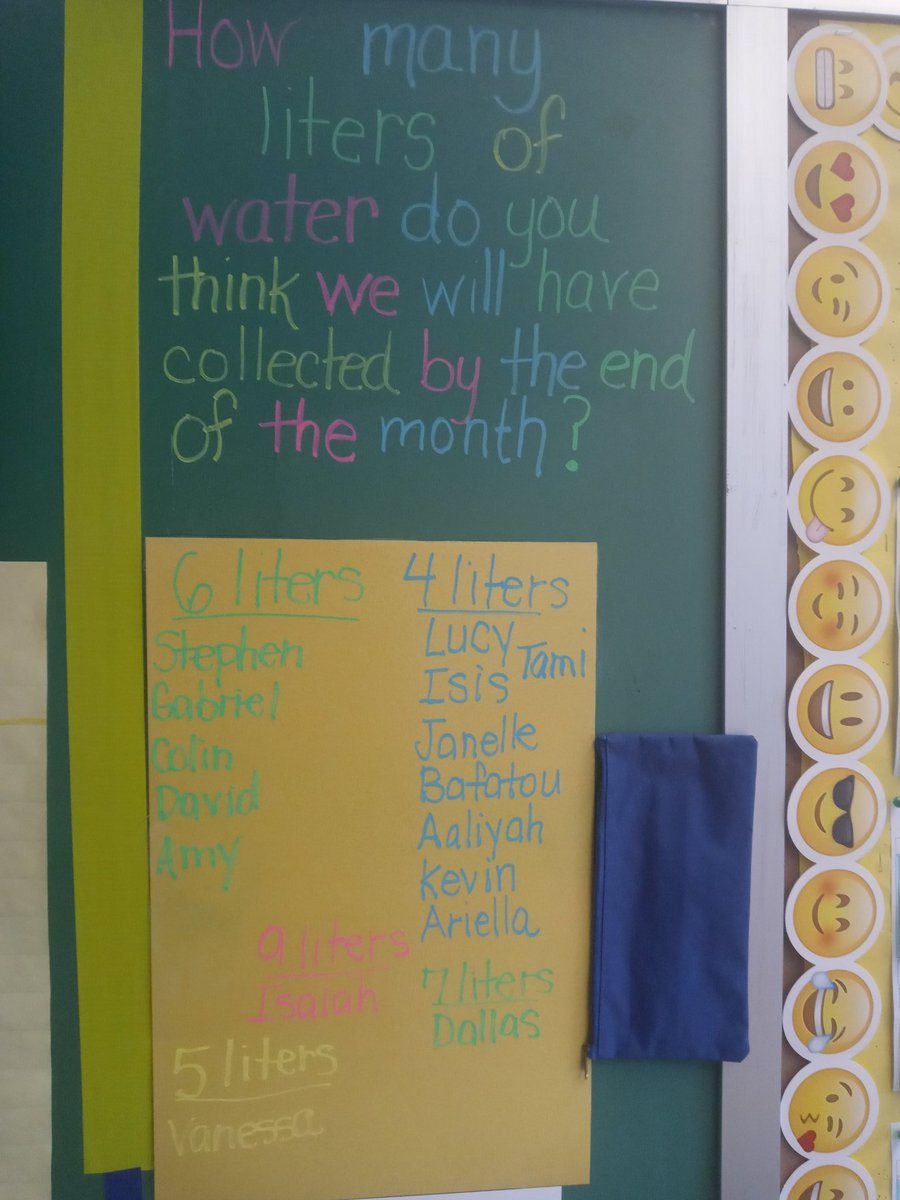 How many
liters of
water do you
think we will have
collected by the end
of the month?
6 liters
Stephen
Gabriel
Colin
David
Amy
4 liters
Lucy
Tami
Isis
Janelle
Bafatou
Aaliyah
Kevin
Ariella
9 liters
Isaiah
7 liters
Dallas
5 liters
Vanessa